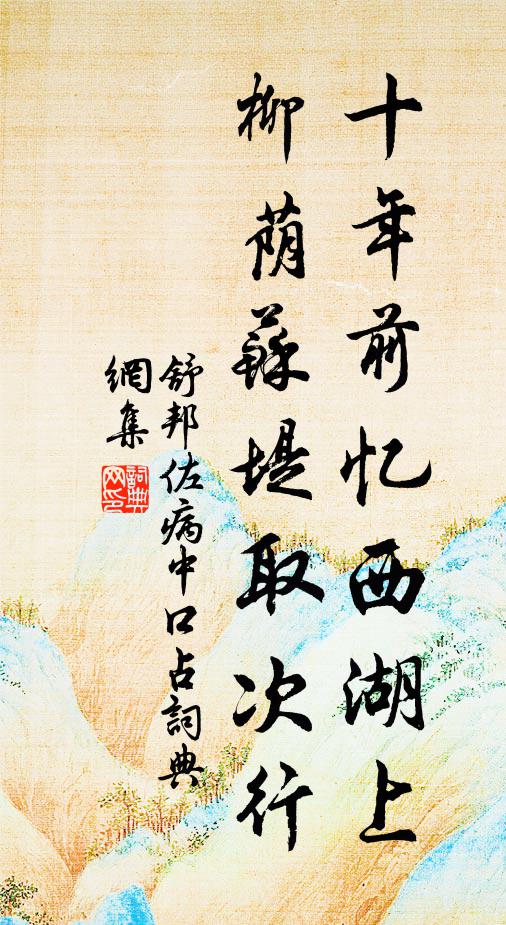 十年前忆西湖上
柳荫苏堤取次行
舒邦佐病中口占詞典
網集